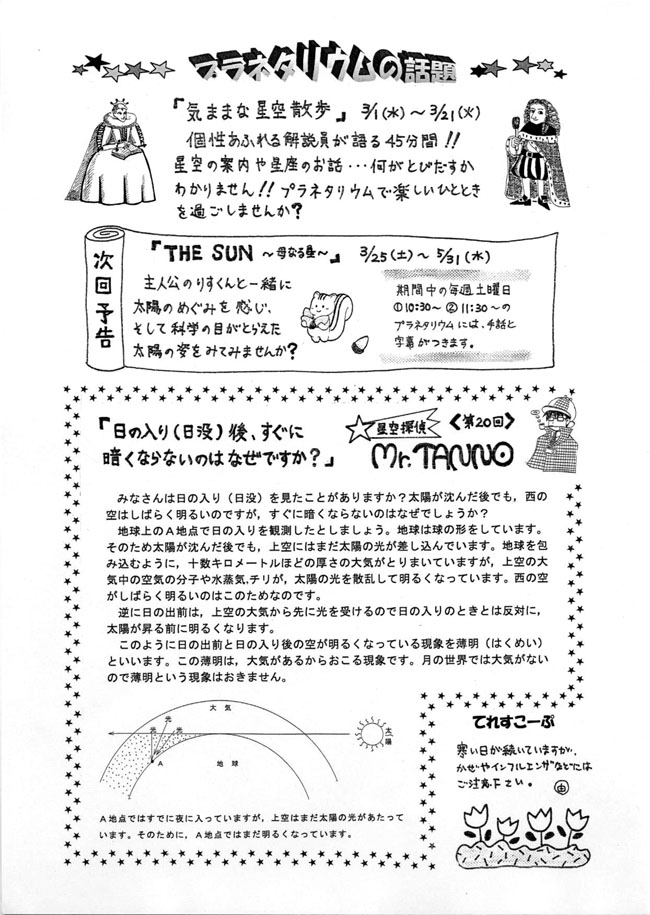 プラネタリウムの話題
「気ままな星空散歩」 3/1(水)～3/21(火)
個性あふれる解説員が語る45分間!!
星空の案内や星座のお話・・・何がとびだすか
わかりません!!プラネタリウムで楽しいひととき
を過ごしませんか?
次回予告
「THE SUN ～母なる星～」 3/25(土)～5/31(水)
主人公のりすくんと一緒に
太陽のめぐみを感じ、
そして科学の目がとらえた
太陽の姿をみてみませんか?
期間中の毎週土曜日
①10:30～ ②11:30～の
プラネタリウムには、手話と
字幕がつきます。
星空探偵 〈第20回〉
Mr.TANNO
「日の入り(日没)後、すぐに
暗くならないのはなぜですか?」
みなさんは日の入り(日没)を見たことがありますか?太陽が沈んだ後でも,西の
空はしばらく明るいのですが,すぐに暗くならないのはなぜでしょうか?
地球上のA地点で日の入りを観測したとしましょう。地球は球の形をしています。
そのため太陽が沈んだ後でも,上空にはまだ太陽の光が差し込んでいます。地球を包
み込むように,十数キロメートルほどの厚さの大気がとりまいていますが,上空の大
気中の空気の分子や水蒸気,チリが,太陽の光を散乱して明るくなっています。西の空
がしばらく明るいのはこのためなのです。
逆に日の出前は,上空の大気から先に光を受けるので日の入りのときとは反対に,
太陽が昇る前に明るくなります。
このように日の出前と日の入り後の空が明るくなっている現象を薄明(はくめい)
といいます。この薄明は,大気があるからおこる現象です。月の世界では大気がない
ので薄明という現象はおきません。
大気
光
光 光
太陽
A
地球
A地点ではすでに夜に入っていますが,上空はまだ太陽の光があたって
います。そのために,A地点ではまだ明るくなっています。
てれすこーぷ
寒い日が続いていますが、
かぜやインフルエンザなどには
ご注意下さい。 由